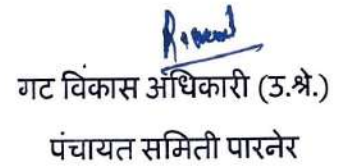 गट विकास अधिकारी (उ.श्रे.)
पंचायत समिती पारनेर